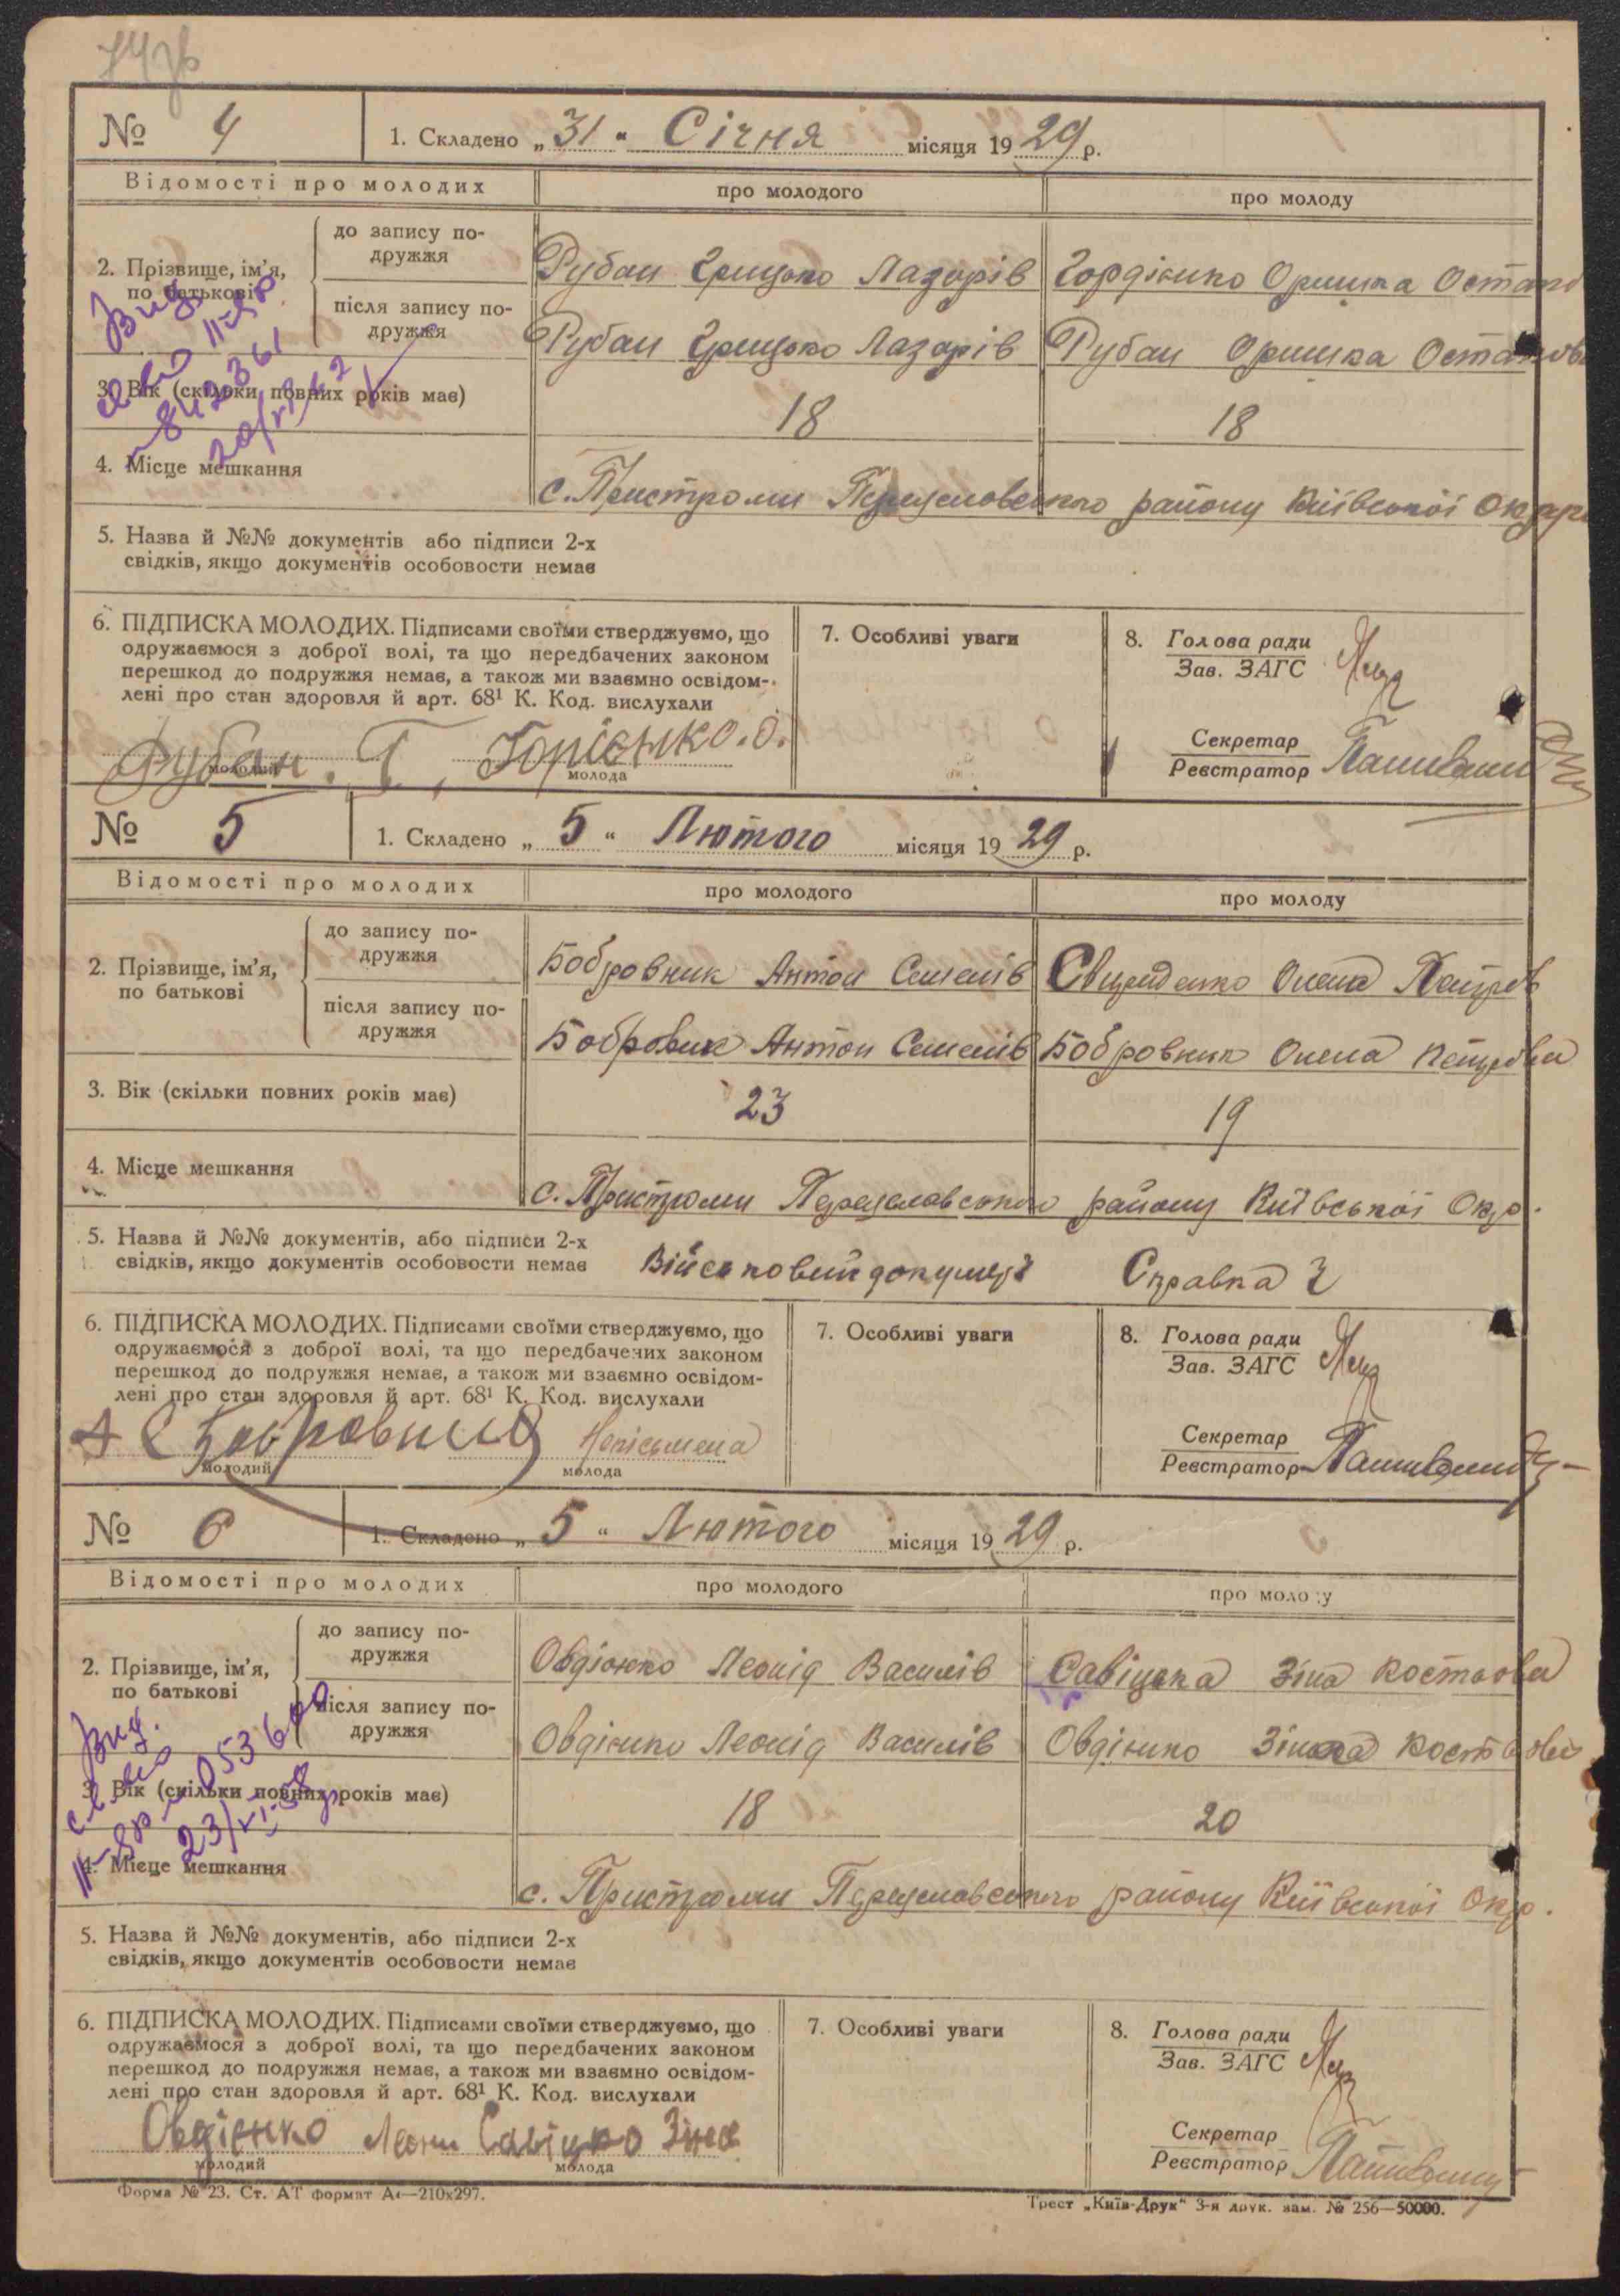 № 4 1. Складено „31“ Січня місяця 1929 р.
Відомості про молодих про молодого про молоду
2. Прізвище, ім’я, по батькові
до запису по-
дружжя
Рубан Грицько Лазарів Гордієнко Оришка Остапо
після запису по-
дружжя
Рубан Грицько Лазарів Рубан Оришка Остапов
3. Вік (скільки повних років має) 18 18
Вид.
св-во ІІ-яр
842361
4. Місце мешкання с. Пристроми Переяславського району Київської Окр
5. Назва й №№ документів або підписи 2-х
свідків, якщо документів особовости немає
6. ПІДПИСКА МОЛОДИХ. Підписами своїми стверджуємо, що
одружаємося з доброї волі, та що передбачених законом
перешкод до подружжя немає, а також ми взаємно освідом-
лені про стан здоров­ля й арт. 68¹ К. Код. вислухали
7. Особливі уваги
8. Голова ради
Зав. ЗАГС
Рубан. Г, Горієнко. О.
молодий молода
Секретар
Реєстратор
№ 5 1. Складено „5“ Лютого місяця 1929 р.
Відомості про молодих про молодого про молоду
2. Прізвище, ім’я,
по батькові
до запису по-
дружжя
Бобровник Антон Семенів Олена Петров
після запису по-
дружжя
Бобровник Антон Семенів Бобровник Олена Петрова
3. Вік (скільки повних років має) 23 19
4. Місце мешкання с. Пристроми Переяславського району Київської Окр.
5. Назва й №№ документів, або підписи 2-х
свідків, якщо документів особовости немає
Військовий документ Справка
6. ПІДПИСКА МОЛОДИХ. Підписами своїми стверджуємо, що
одружаємося з доброї волі, та що передбачених законом
перешкод до подружжя немає, а також ми взаємно освідом-
лені про стан здоровля й арт. 68¹ К. Код. вислухали
7. Особливі уваги
8. Голова ради
Зав. ЗАГС
А С Бобровник Непісьмена
молодий молода
Секретар
Реєстратор
№ 6 1. Складено „5“ Лютого місяця 1929 р.
Відомості про молодих про молодого про молоду
2. Прізвище, ім’я,
по батькові
до запису по-
дружжя
Овдієнко Леонід Василів Савіцька Зіна Костьова
після запису по-
дружжя
Овдієнко Леонід Василів Овдієнко Зіна
3. Вік (скільки повних років має) 18 20
Вид.
св-во
4. Місце мешкання с. Пристроми Переяславського району Київської Окр.
5. Назва й №№ документів, або підписи 2-х
свідків, якщо документів особовости немає
6. ПІДПИСКА МОЛОДИХ. Підписами своїми стверджуємо, що
одружаємося з доброї волі, та що передбачених законом
перешкод до подружжя немає, а також ми взаємно освідом-
лені про стан здоровля й арт. 68¹ К. Код. вислухали
7. Особливі уваги
8. Голова ради
Зав. ЗАГС
Овдієнко Леони Савіцко Зіна
молодий молода
Секретар
Реєстратор
Форма № 23. Ст. АТ формат А4—210х297.
Трест „Київ-Друк“ 3-я друк. зам. № 256—50000.